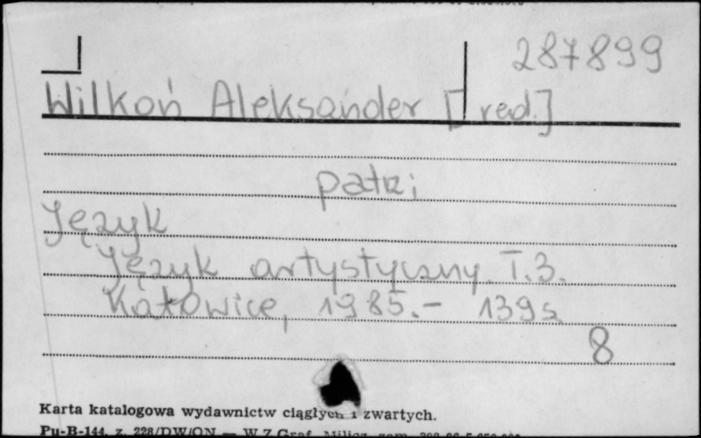 287899
Wilkoń Aleksander [red.]
patrz
Język
Język artystyczny. T.3.
Katowice, 1985.- 139s.
8
Karta katalogowa wydawnictw ciągłych i zwartych.
Pu-B-144, z. 228/DW/ON — W.Z.Graf. Milicz, zam.